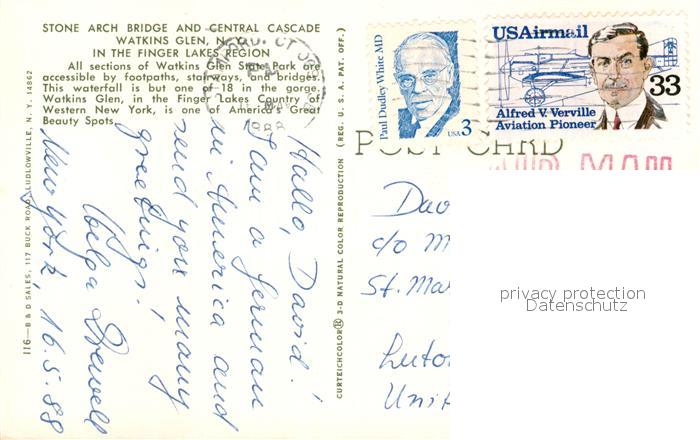 STONE ARCH BRIDGE AND CENTRAL CASCADE
WATKINS GLEN, N.
IN THE FINGER LAKES REGION
All sections of Watkins Glen State Park are
accessible by footpaths, stairways, and bridges.
This waterfall is but one of 18 in the gorge.
Watkins Glen, in the Finger Lakes Country of
Western New York, is one of America's Great
Beauty Spots.
116—B & D SALES, 117 BUCK ROAD, LUDLOWVILLE, N. Y. 14862
CURTEICHCOLOR® 3-D NATURAL COLOR REPRODUCTION (REG. U. S. A. PAT. OFF.)
Paul Dudley White MD
USA 3
USAirmail
33
Alfred V. Verville
Aviation Pioneer
POST CARD
AIR MAIL
Hallo, David!
I am a German
in America and
send you many
greetings!
Helga
New York, 16.5.88
Dav
c/o M
St. Mar
Luto
Unit
privacy protection
Datenschutz